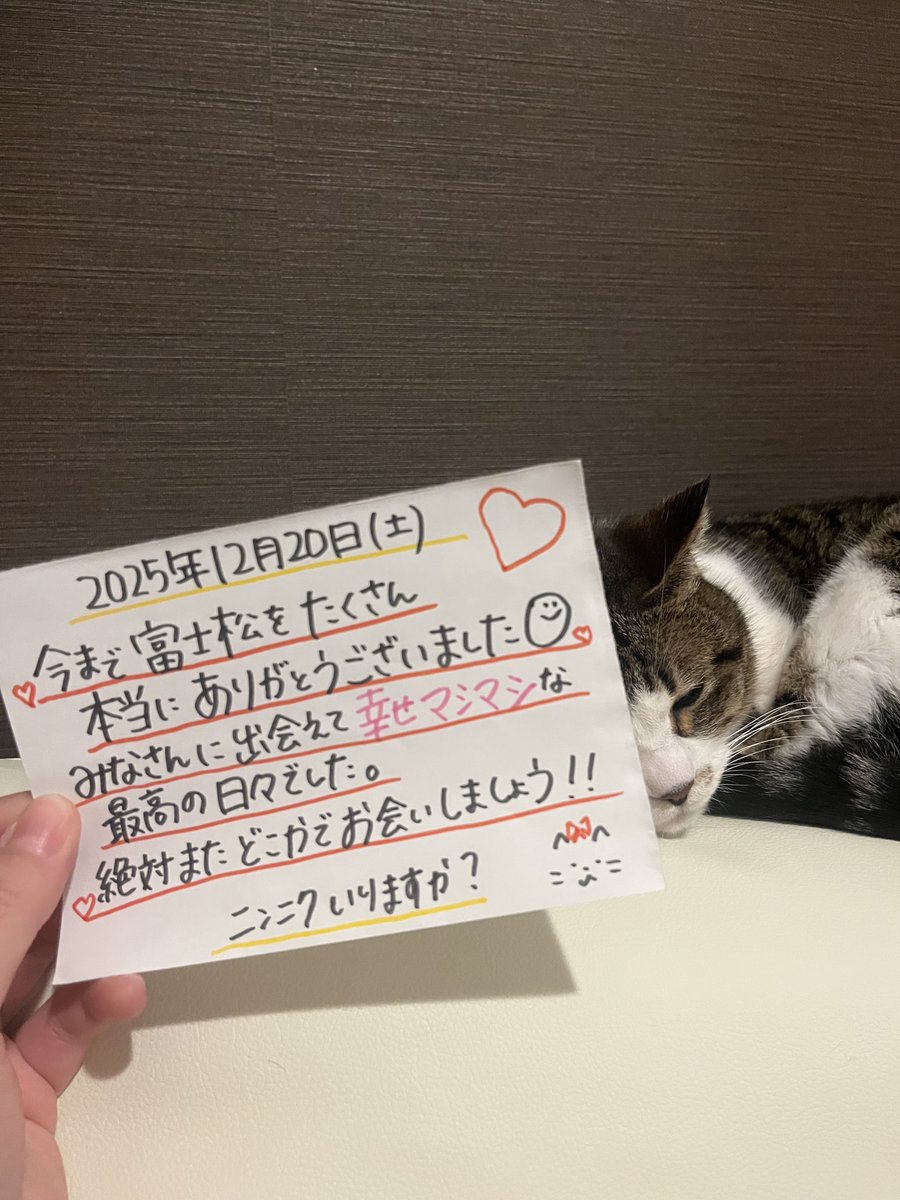 2025年12月20日(土)
今まで富士松をたくさん
本当にありがとうございました
みなさんに出会えて幸せマシマシな
最高の日々でした。
絶対またどこかでお会いしましょう!!
ニンニクいりますか?